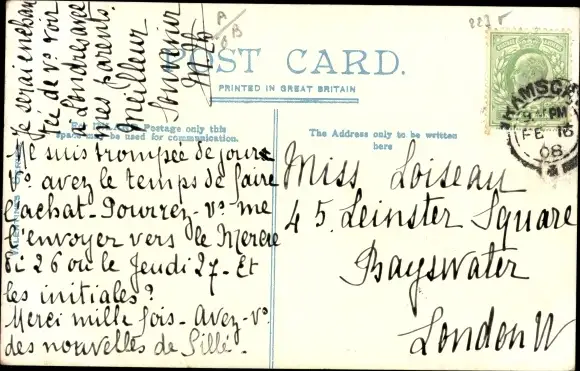 Je serai enchan
tée de vs voir
à Londres avec
mes parents.
Meilleur
Souvenir
A
8B
227
POST CARD.
PRINTED IN GREAT BRITAIN
Postage only this
space may be used for communication.
The Address only to be written
here
Me suis trompée de jour
Vs avez le temps de faire
l'achat_ Pourrez-vs me
l'envoyer vers le Mercre
di 26 ou le Jeudi 27_ Et
les initiales?
Merci mille fois_ Avez-vs
des nouvelles de Sillé_
RAMSGA
9 PM
FE 16
08
Miss Loiseau
45. Leinster Square
Bayswater
London W